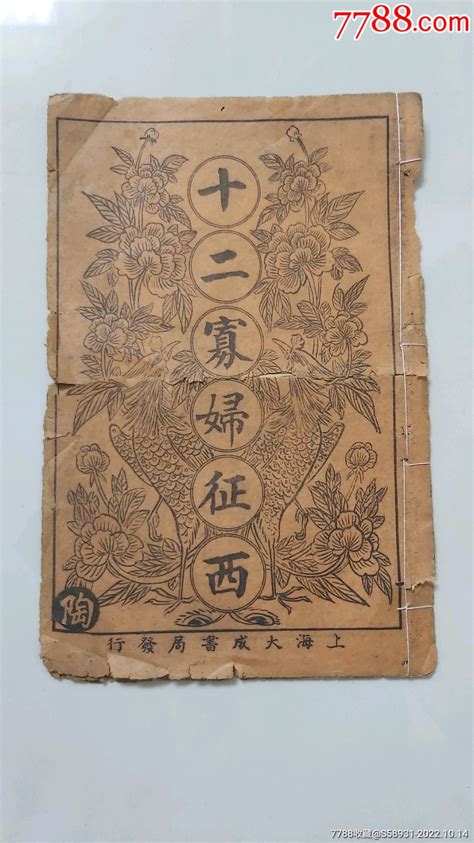 7788.com
十二寡婦征西
陶
上海大成書局發行
7788收藏@S58931-2022.10.14